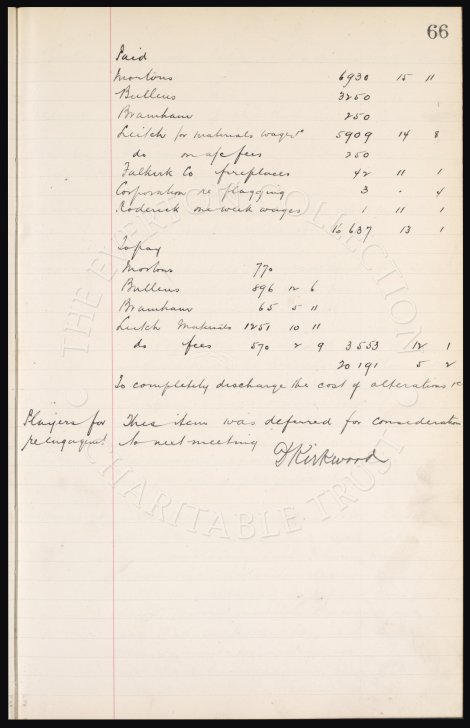 66
Paid
Mortons 6930 15 11
Bullens 3250
Bramham 250
Leitch for materials wages &c 5909 14 8
do on a/c fees 250
Falkirk Co fireplaces 42 11 1
Corporation re flagging 3 . 4
Roderick one week wages 1 11 1
16637 13 1
To pay
Mortons 770
Bullens 896 12 6
Bramham 65 5 11
Leitch Materials 1251 10 11
do fees 570 2 9 3553 12 1
20191 5 2
To completely discharge the cost of alterations &c
Players for This item was deferred for consideration
re engagemt. to next meeting
D Kirkwood
THE EVERTON COLLECTION
CHARITABLE TRUST